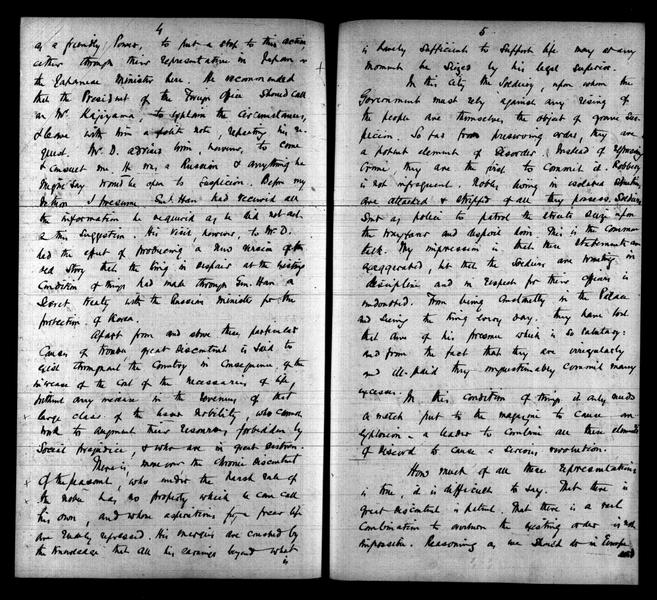 4
as a friendly Power, to put a stop to this action,
either through their representative in Japan or
the Japanese Minister here. He recommended
that the President of the Foreign Office should call
on Mr. Kajiyama, to explain the circumstances,
& leave with him a polite note, repeating his re-
quest. Mr. D. advised him, however, to come
& consult me. He was a Russian & anything he
might say would be open to suspicion. Before my
I presume Han had received all
the information he required as he did not act
on this suggestion. His visit, however, to Mr. D.
had the effect of producing a new version of the
old story that the King in despair at the existing
condition of things had made through Han a
Secret treaty with the Russian Minister for the
protection of Korea.
Apart from and above these particular
causes of trouble, great discontent is said to
exist throughout the Country in consequence of the
increase of the cost of the necessaries of life,
without any increase in the revenues of that
large class of the nobility, who cannot
work to augment their resources, forbidden by
Social prejudice, & who are in great distress.
There is, moreover the chronic discontent
of the peasant, who under the harsh rule of
the noble has no property which he can call
his own, and whose aspirations for a freer life
are rudely repressed. His energies are crushed by
the knowledge that all his earnings beyond what
is
5
is barely sufficient to support life may at any
moment be seized by his legal superior.
In this city the Soldiery, upon whom the
Government must rely against any rising of
the people are themselves, the object of grave sus-
picion. So far from preserving order, they are
a potent element of disorder. Instead of repressing
Crime they are the first to commit it. Robbery
is not infrequent. Nobles living in isolated situations
are attacked & stripped of all they possess. Soldiers
sent as police to patrol the streets seize upon
the wayfarer and despoil him. This is the common
talk. My impression is that these statements are
exaggerated, but that the Soldiers are wanting in
discipline and in respect for their officers is
undoubted. From being constantly in the Palace
and seeing the King every day. they have lost
that awe of his presence which is so salutary:
and from the fact that they are irregularly
and ill-paid they unquestionably commit many
excesses.
In this condition of things it only needs
a match put to the magazine to cause an
explosion - a leader to combine all these elements
of discord to cause a serious revolution.
How much of all these representations
is true, it is difficult to say. That there is
great discontent is patent. That there is a real
combination to overturn the existing order is not
impossible. Reasoning as we should do in Europe